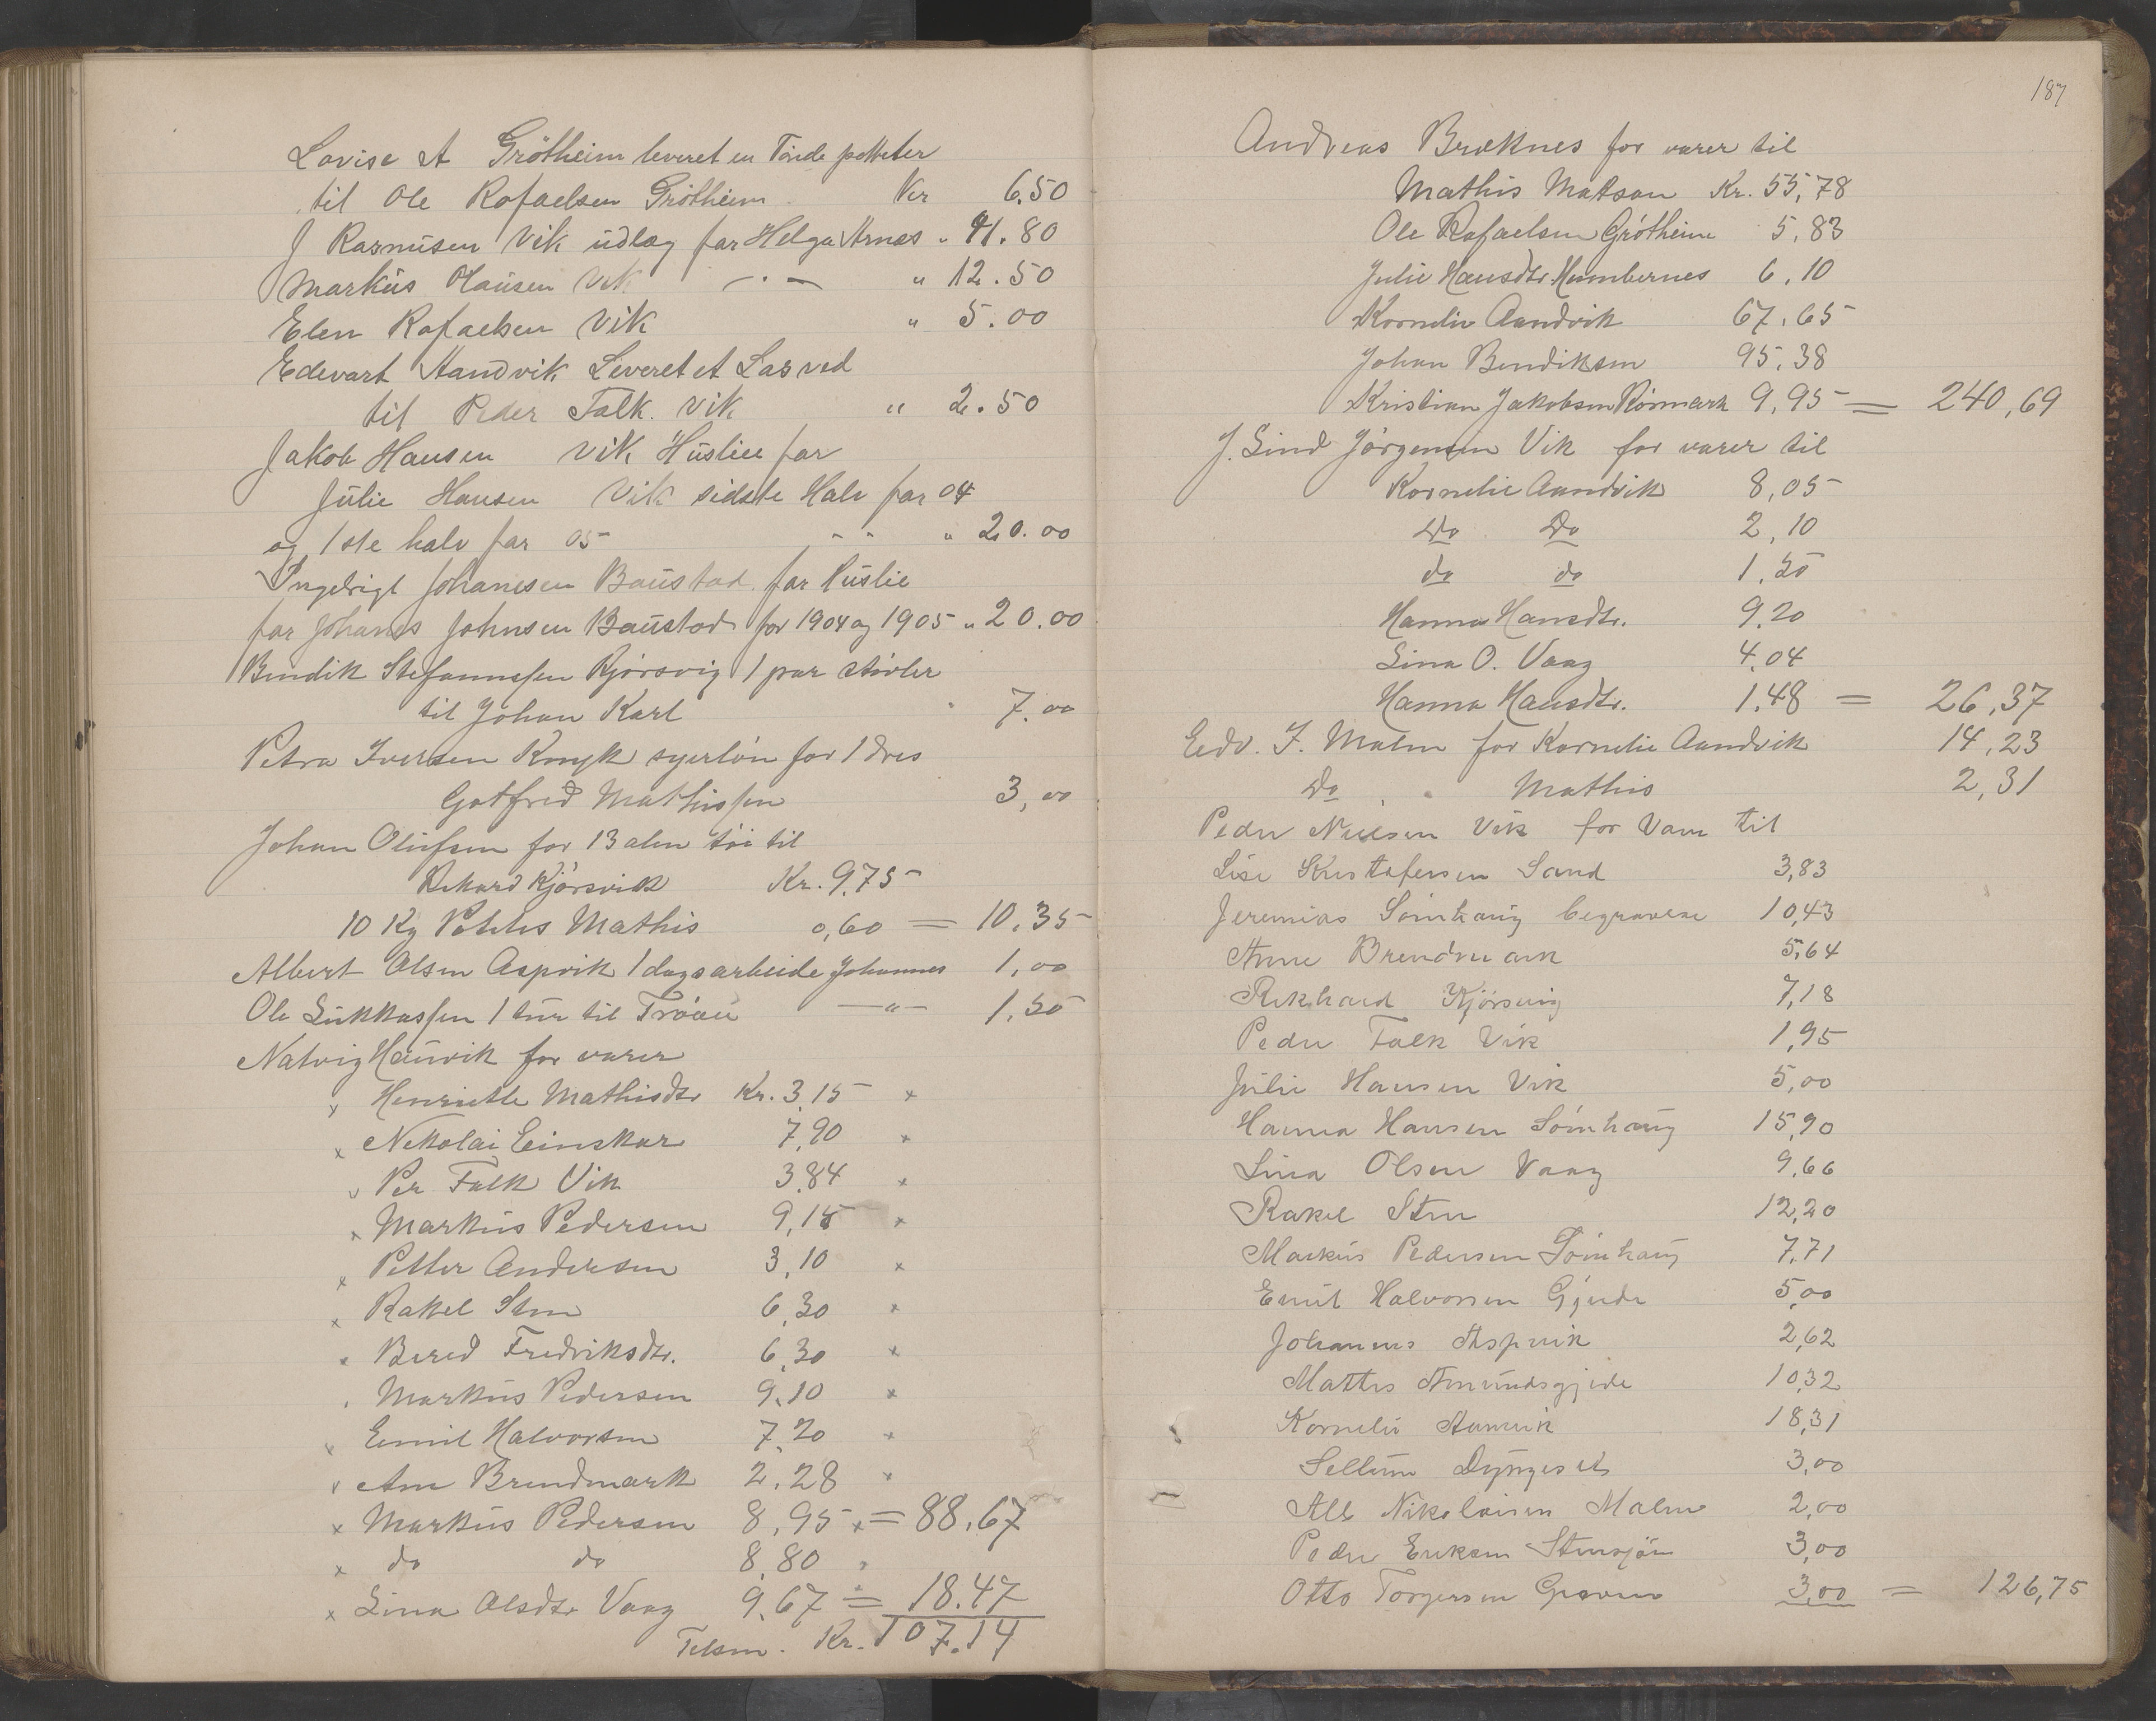 Lovise A Grötheim leveret en Tönde potteter
til Ole Rafaelsen Grötheim Kr 6.50
J Rasmusen Vik udlæg far Helga Arnes " 41.80
Markus Olausen Vik — " — " 12.50
Elen Rafaelsen Vik " 5.00
Edevart Aandvik Leveret et Las ved
til Peder Falk. Vik " 2.50
Jakob Hansen Vik Huslie far
Julie Hansen Vik sidste Halv far 04
og 1ste halv far 05 " " " 20.00
Ingebrigt Johanesen Baustad far Huslie
far Johanes Johnsen Baustad for 1904 og 1905 " 20.00
Bendik Stefanussen Kjörsvig 1 par stövler
til Johan Karl " 7.00
Petra Iversen Knyk syerlön for 1 dres
Gotfred Mathissen 3,00
Johan Olufsen for 13 alen töi til
Rikard Kjörsvik Kr. 9.75
10 Kg Potetes Mathis 0,60 = 10.35
Albert Olsen Aspvik 1 dagsarbeide Johannes 1,00
Ole Lukkassen 1 tur til —"— 1.50
Natvig Hauvik for varer
x Henriette Mathisdtr Kr. 3,15 x
x Nekolai Einskar 7,90 x
v Per Falk Vik 3.84 x
x Markus Pedersen 9,18 x
x Petter Andersen 3,10 x
x Rakel Sten 6,30 x
x Bered Fredriksdtr. 6,30 x
. Markus Pedersen 9,10 x
x Emil Halvorsen 7,20 x
v Ane Brendmark 2.28 x
x Markus Pedersen 8,95 x = 88.67
x do do 8,80
x Lina Olsdtr Vaag 9,67 = 18.47
Tilsm. Kr. 107.14
187
Andreas Bræknes for varer til
Mathis Matson Kr. 55,78
Ole Rafaelsen Grötheim 5,83
Julie Hansdtr. Humbernes 6,10
Kornelie Aandvik 67,65
Johan Bendiksen 95,38
Kristian Jakobsen Rörmark 9,95 = 240,69
J. Lind Jörgensen Vik for varer til
Kornelie Aandvik 8,05
Do Do 2,10
do do 1,50
Hanna Hansdtr. 9.20
Lina O. Vaag 4.04
Hanna Hansdtr. 1.48 = 26,37
Edv. J. Malm for Kornelie Aandvik 14,23
Do " Mathis 2,31
Peder Nielsen Vik for Varer til
Lise Kristofersen Sand 3,83
Jeremias Sömhaug begravelse 10,43
Anne Brendmark 5,64
Rikhard Kjörsvig 7,18
Peder Falk Vik 1,95
Julie Hansen Vik 5,00
Hanna Hansen Sömhaug 15,90
Lina Olsen Vaag 9,66
Rakel Sten 12,20
Markus Pedersen Sömhaug 7,71
Emil Halvorsen Gjerde 5,00
Johannes Aspvik 2,62
Mattis Amundsgjerde 10,32
Kornelie Aanvik 18,31
Sellum Dyrgesets 3,00
Alb Nikolaisen Malm 2,00
Peder Eriksen Stensjöen 3,00
Otto Torgersen 3,00 = 126,75